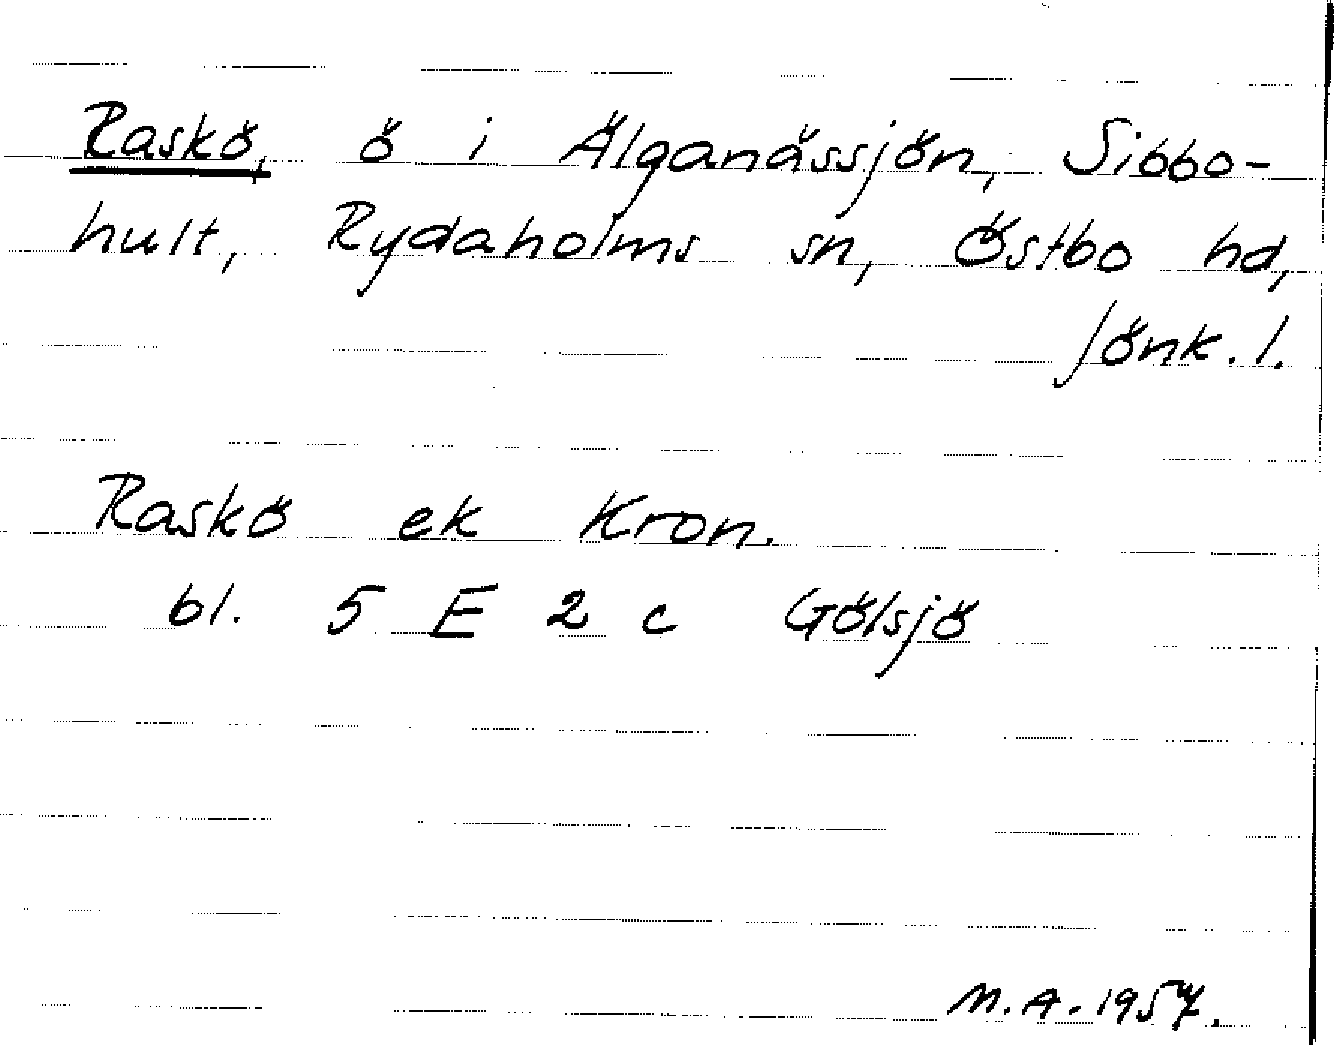 Raskö, ö i Älganässjön, Sibbo-
hult, Rydaholms sn, Östbo hd,
Jönk. l.
Raskö ek Kron.
bl. 5 E 2 c Gölsjö
M.A. 1957.